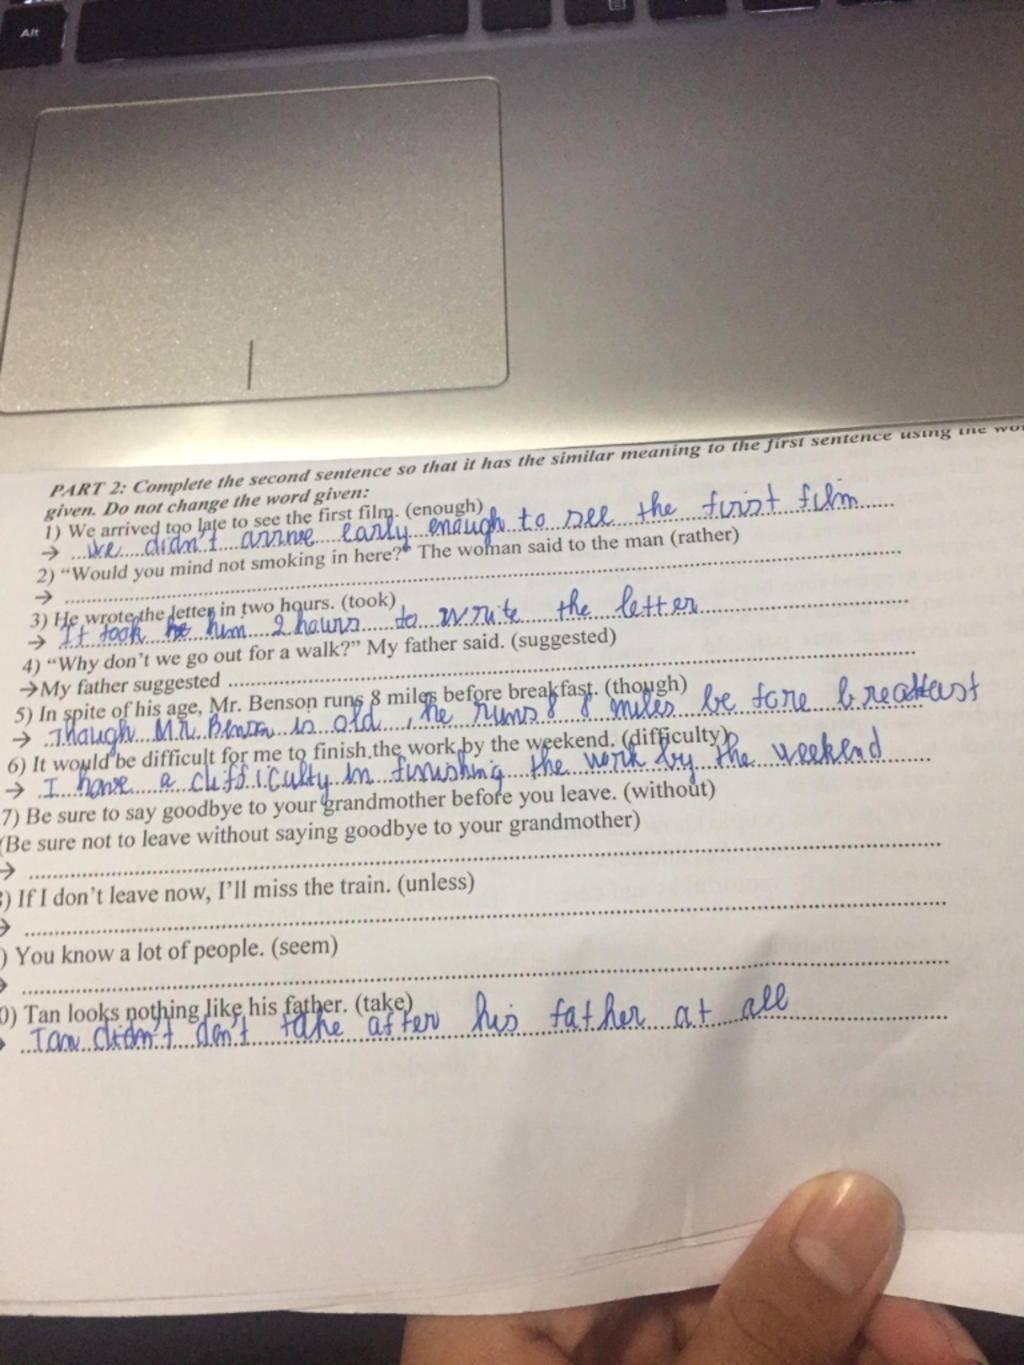 Alt
PART 2: Complete the second sentence so that it has the similar meaning to the first sentence using the
given. Do not change the word given:
1) We arrived too late to see the first film. (enough)
→ We didn't arrive early enough to see the first film
2) "Would you mind not smoking in here?" The woman said to the man (rather)
→
3) He wrote the letter in two hours. (took)
→ It took him 2 hours to write the letter
4) "Why don't we go out for a walk?" My father said. (suggested)
→My father suggested
5) In spite of his age, Mr. Benson runs 8 miles before breakfast. (though)
→ Though Mr. Benson is old, he runs 8 8 miles before breakfast
6) It would be difficult for me to finish the work by the weekend. (difficulty)
→ I have a difficulty in finishing the work by the weekend
7) Be sure to say goodbye to your grandmother before you leave. (without)
(Be sure not to leave without saying goodbye to your grandmother)
→
) If I don't leave now, I'll miss the train. (unless)
→
) You know a lot of people. (seem)
0) Tan looks nothing like his father. (take)
Tan didn't don't take after his father at all